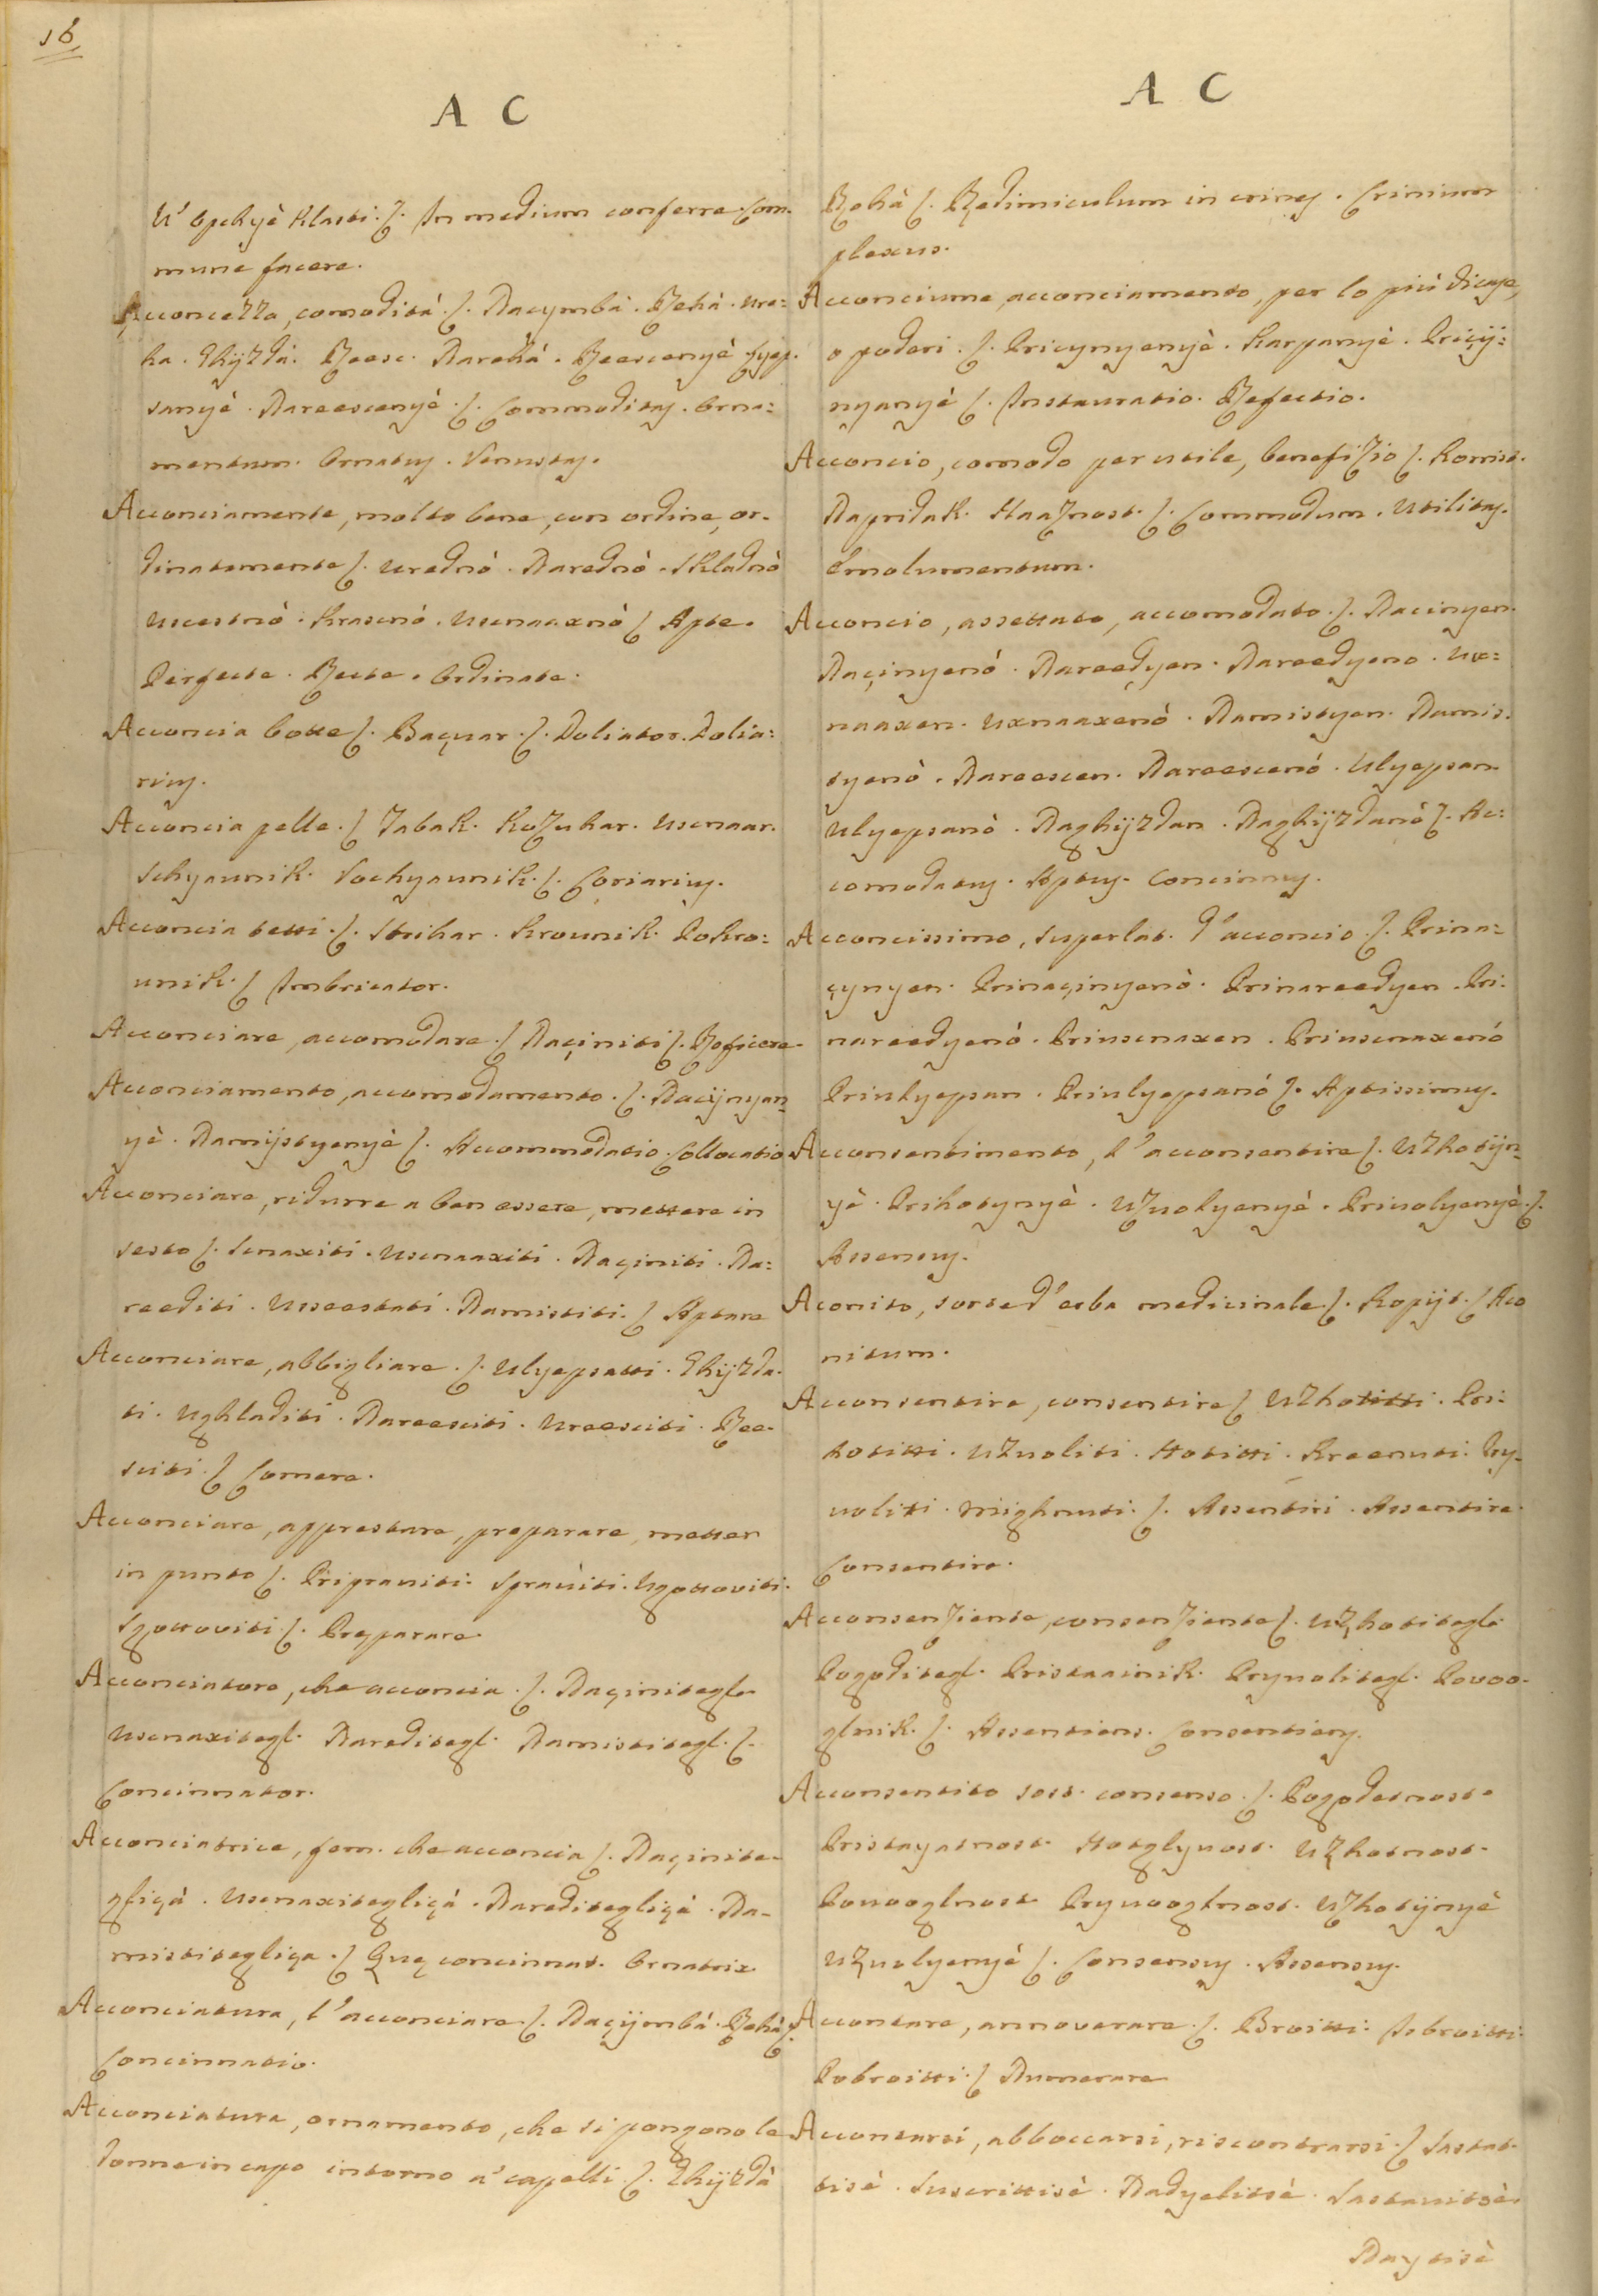 16
A C
U' opchyè Klasti. ſ. In medium conferre. Com-
mune facere.
Acconcezza, comodità. ſ. Nacymba. Rehà. Ure=
ha. Ghijzdà. Reesc. Narehà. Reescenyè Lyep-
sanyè. Nareescenyè. ſ. Commoditas. Orna=
mentum. Ornatus. Venustas.
Acconciamente, molto bene, con ordine, or-
dinatamente ſ. Urednò. Narednò. Skladnò
Ucestnò. Krasnò. Uscnaaxnò ſ. Apte.
Perfecte. Recte. Ordinate.
Acconcia botte ſ. Baçuar. ſ. Doliator. Dolia=
rius.
Acconcia pelle. ſ. Tabak. Kozuhar. Uscnaar.
Schyaunik. Sochyaunik. ſ. Coriarius.
Acconcia tetti. ſ. Strihar. Krounik. Pokro=
unik. ſ. Imbricator.
Acconciare, accomodare. ſ. Naçiniti ſ. Reficere
Acconciamento, accomodamento. ſ. Nacijnyan
yè. Namijstyenyè ſ. Accommodatio. Collocatio
Acconciare, ridurre a ben essere, mettere in
sesto ſ. Scnaxiti. Uscnaaxiti. Naçiniti. Na=
reediti. Usseestati. Namistiti. ſ. Aptare
Acconciare, abbigliare. ſ. Ulyepsatti. Ghijzda-
ti. Ughladiti. Nareesciti. Ureesciti. Ree-
sciti. ſ. Comere.
Acconciare, apprestare, preparare, metter
in punto ſ. Pripraviti. Spraviti. Ugottoviti.
Sgottoviti. ſ. Preparare
Acconciatore, che acconcia. ſ. Naçinitegl.
Uscnaxitegl. Nareditegl. Namistitegl. ſ.
Concinnator.
Acconciatrice, fem. che acconcia ſ. Naçinite-
gliçà. Uscnaxitegliçà. Nareditegliçà. Na-
mistitegliça. ſ. Quę concinnat. Ornatrix
Acconciatura, l'acconciare. ſ. Naçijmbà. Rehà ſ.
Concinnatio.
Acconciatura, ornamento, che si pongono le
donne in capo intorno a' capelli. ſ. Ghijzdà
A C
Rehà ſ. Redimiculum in crines. Crinium
plexus.
Acconciume, acconciamento, per lo più dicase,
o poderi. ſ. Pricynyenyè. Karpanyè. Pricij=
nyanyè ſ. Instauratio. Refectio.
Acconcio, comodo per utile, benefizio ſ. Korrist.
Napridak. Haaznost. ſ. Commodum. Utilitas.
Emolumentum.
Acconcio, assettato, accomodato. ſ. Nacinyen.
Naçinyenò. Nareedyen. Nareedyeno. Ux=
naaxen. Uxnaaxenò. Namistyen. Namis-
tyenò. Nareescen. Nareescenò. Ulyepsan
Ulyepsanò. Naghijzdan. Naghijzdanò ſ. Ac=
comodatus. Aptus. Concinnus.
Acconcissimo, superlat. d'acconcio. ſ. Prina=
çynyen. Prinaçinyenò. Prinareedyen. Pri-
nareedyenò. Priuscnaxen. Priuscnaxenò
Priulyepsan. Priulyepsanò ſ. Aptissimus.
Acconsentimento, l'acconsentire ſ. Uzhotijn
yè. Prihotynyè. Uzuolyenyè. Priuolyenyè. ſ.
Assensus.
Aconito, sorte d'erba medicinale. ſ. Kopijt. ſ. Aco
nitum.
Acconsentire, consentire ſ. Uzhotitti. Pri-
hotitti. Uzuoliti. Hotitti. Kreenuti. Pry-
uoliti. Mighnuti. ſ. Assentiri. Assentire.
Consentire.
Acconsenziente, consenziente ſ. Uzhotitegl.
Pogoditegl. Pristaainik. Pryuolitegl. Povoo-
glnik. ſ. Assentiens. Consentiens.
Acconsentito sost. consenso. ſ. Pogodetnost.
Pristayatnost. Hotglyuost. Uzhotnost.
Pouooglnost. Pryuooglnost. Uzhotijnyè
Uzuolyenyè ſ. Consensus. Assensus.
Accontare, annoverare. ſ. Broitti. Isbroitti.
Pobroitti. ſ. Numerare
Accontarsi, abboccarsi, riscontrarsi. ſ. Sastat-
tisè. Suscrittisè. Nadyelitsè. Sastauitsè.
Naytisè